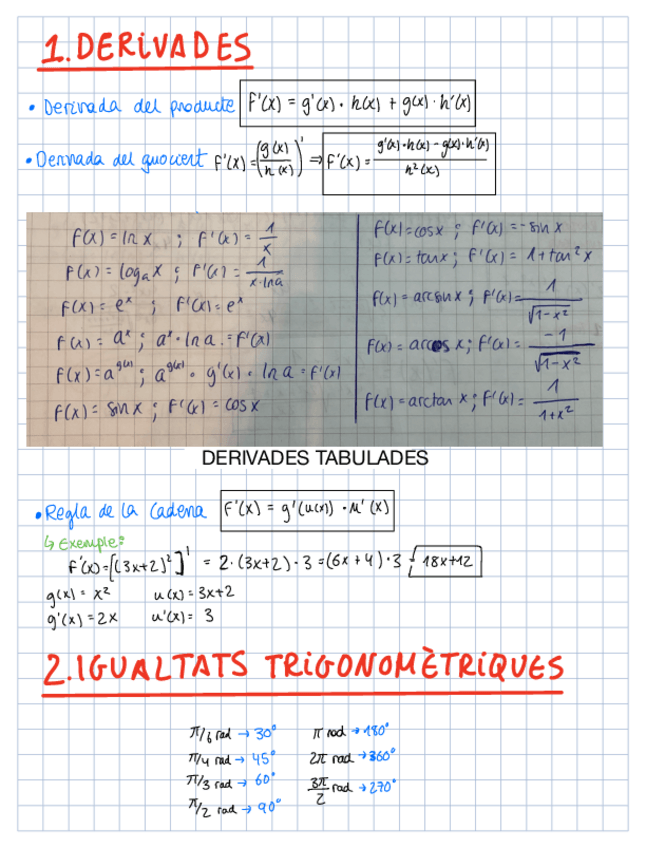 1. DERIVADES
• Derivada del producte f'(x) = g'(x) · h(x) + g(x) · h'(x)
• Derivada del quocient f'(x) = (g(x)/h(x))' ⇒ f'(x) = g'(x)·h(x) - g(x)·h'(x) / h²(x)
f(x) = ln x ; f'(x) = 1/x
f(x) = logₐ x ; f'(x) = 1/(x·ln a)
f(x) = eˣ ; f'(x) = eˣ
f(x) = aˣ ; aˣ · ln a = f'(x)
f(x) = a^g(x) ; a^g(x) · g'(x) · ln a = f'(x)
f(x) = sin x ; f'(x) = cos x
f(x) = cos x ; f'(x) = - sin x
f(x) = tan x ; f'(x) = 1 + tan² x
f(x) = arcsin x ; f'(x) = 1/√(1-x²)
f(x) = arccos x ; f'(x) = -1/√(1-x²)
f(x) = arctan x ; f'(x) = 1/(1+x²)
DERIVADES TABULADES
• Regla de la Cadena f'(x) = g'(u(x)) · u'(x)
↳ Exemple:
f'(x) = [(3x+2)²]' = 2·(3x+2)·3 = (6x+4)·3 = 18x+12
g(x) = x² u(x) = 3x+2
g'(x) = 2x u'(x) = 3
2. IGUALTATS TRIGONOMÈTRIQUES
π/6 rad → 30° π rad → 180°
π/4 rad → 45° 2π rad → 360°
π/3 rad → 60° 3π/2 rad → 270°
π/2 rad → 90°